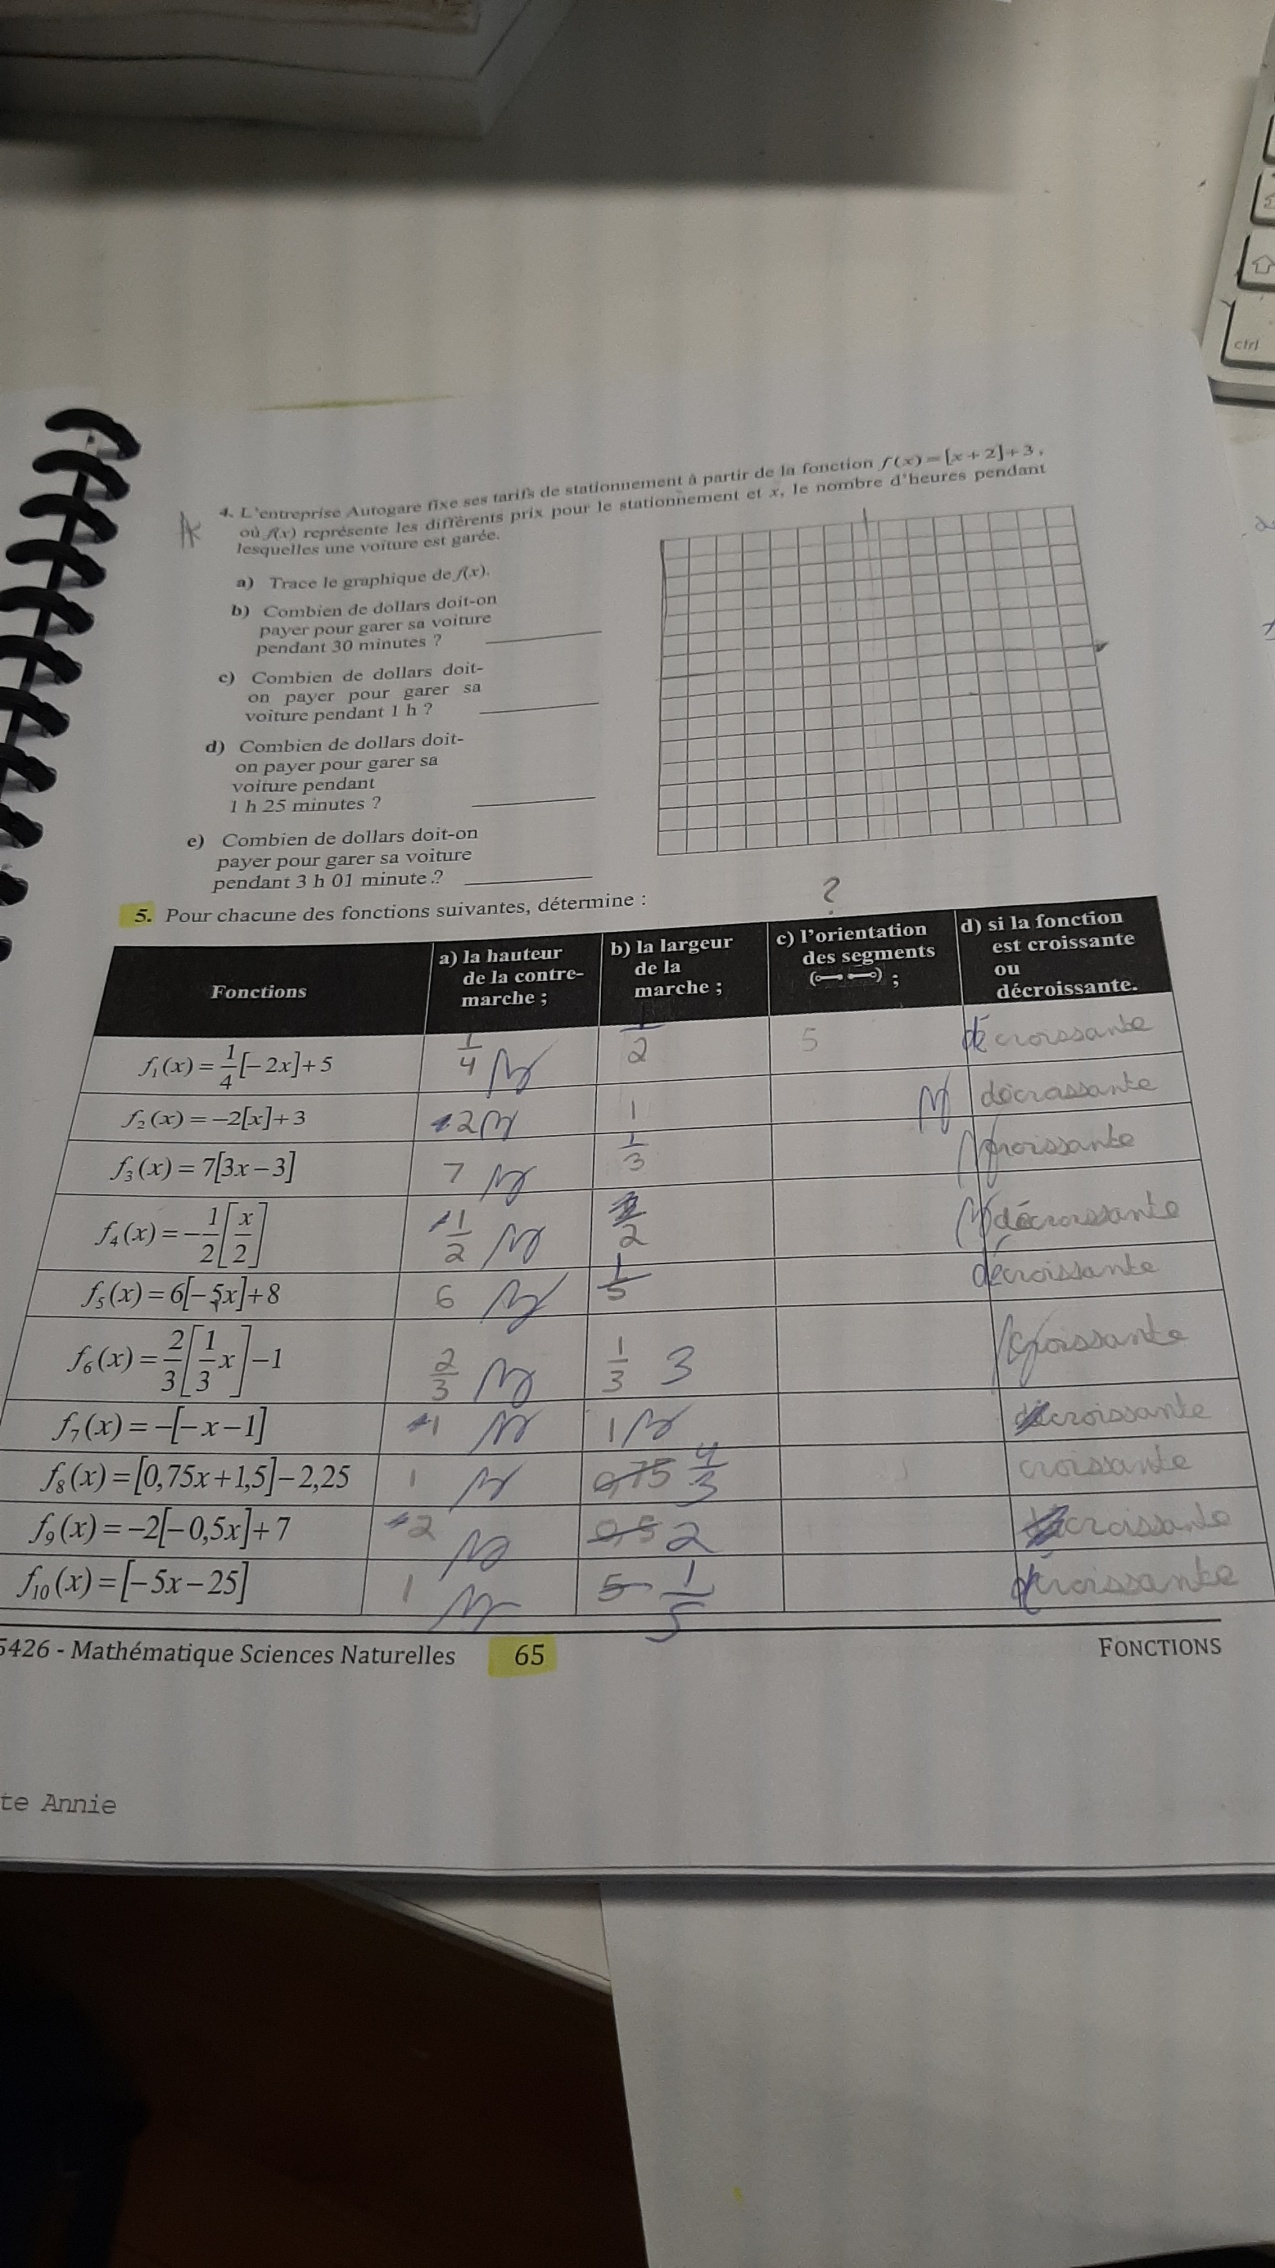 ctrl
4. L'entreprise Autogare fixe ses tarifs de stationnement à partir de la fonction f(x) = [x + 2] + 3,
où f(x) représente les différents prix pour le stationnement et x, le nombre d'heures pendant
lesquelles une voiture est garée.
a) Trace le graphique de f(x).
b) Combien de dollars doit-on
payer pour garer sa voiture
pendant 30 minutes ?
c) Combien de dollars doit-
on payer pour garer sa
voiture pendant 1 h ?
d) Combien de dollars doit-
on payer pour garer sa
voiture pendant
1 h 25 minutes ?
e) Combien de dollars doit-on
payer pour garer sa voiture
pendant 3 h 01 minute.?
?
5. Pour chacune des fonctions suivantes, détermine :
Fonctions
a) la hauteur
de la contre-
marche ;
b) la largeur
de la
marche ;
c) l'orientation
des segments
( ) ;
d) si la fonction
est croissante
ou
décroissante.
f₁(x) = 1/4[−2x]+5 1/4 1/2 5 décroissante
f₂(x) = −2[x]+3 2 1 décroissante
f₃(x) = 7[3x−3] 7 1/3 croissante
f₄(x) = −1/2[x/2] 1/2 2 décroissante
f₅(x) = 6[−5x]+8 6 1/5 décroissante
f₆(x) = 2/3[1/3 x]−1 2/3 1/3 3 croissante
f₇(x) = −[−x−1] 1 1 croissante
f₈(x) = [0,75x+1,5]−2,25 1 0,75 4/3 croissante
f₉(x) = −2[−0,5x]+7 2 0,5 2 croissante
f₁₀(x) = [−5x−25] 1 5 1/5 décroissante
5426 - Mathématique Sciences Naturelles 65 FONCTIONS
te Annie